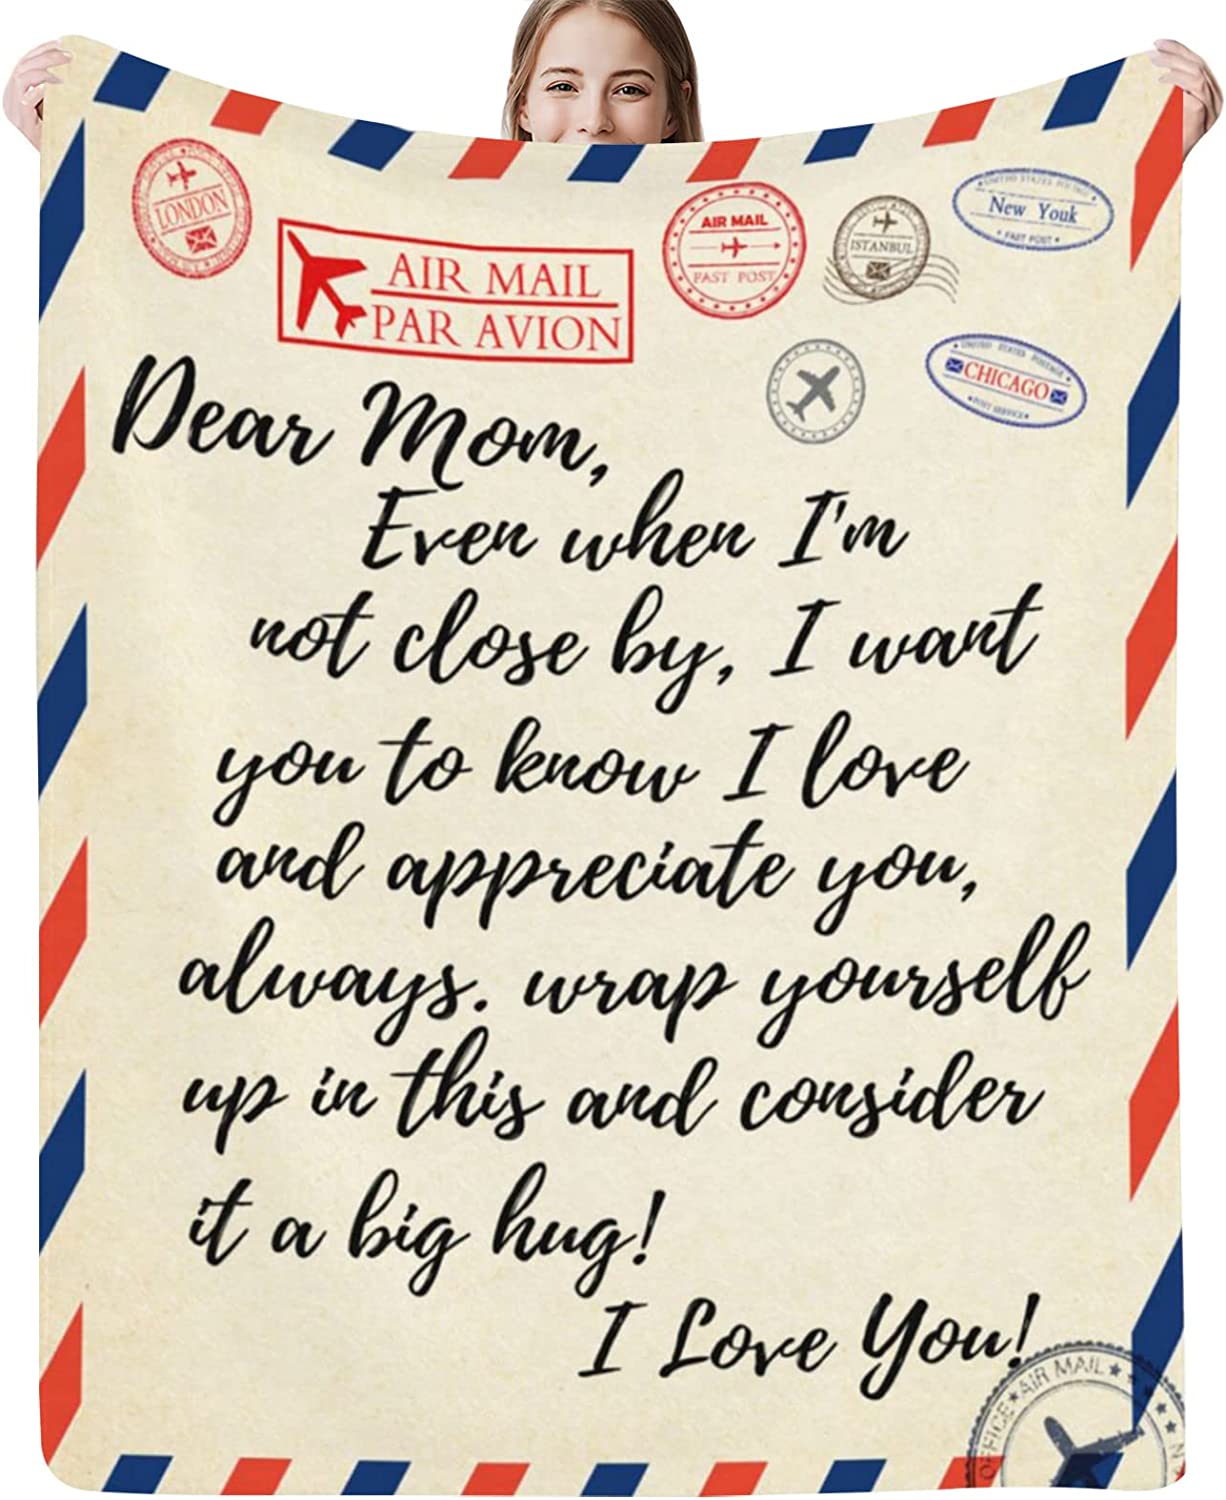 LONDON
AIR MAIL
PAR AVION
AIR MAIL
FAST POST
ISTANBUL
UNITED STATES POSTAGE
New Youk
FAST POST
UNITED STATES POSTAGE
CHICAGO
POST SERVICE
Dear Mom,
Even when I'm
not close by, I want
you to know I love
and appreciate you,
always. wrap yourself
up in this and consider
it a big hug!
I Love You!
OFFICE ★ AIR MAIL ★